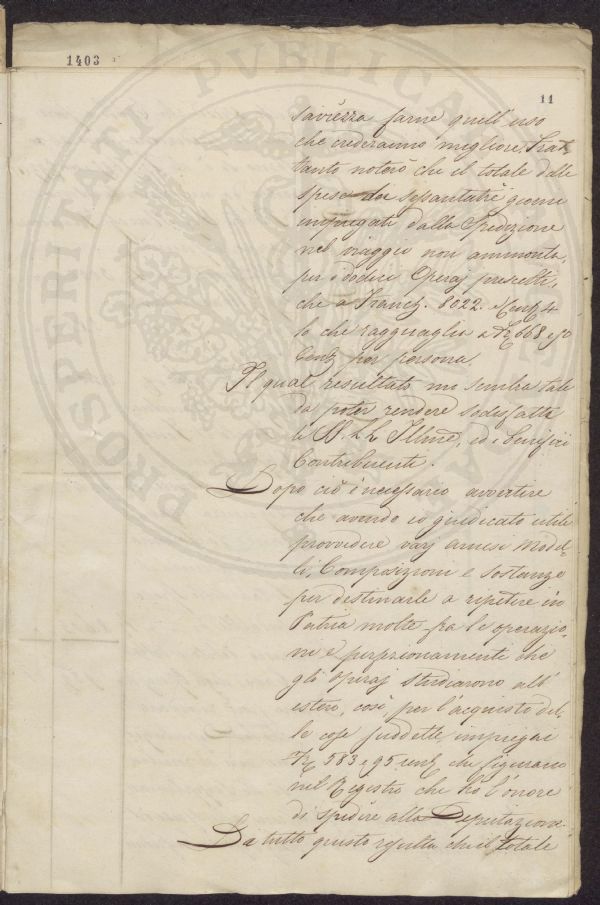 1403
PROSPERITATI PVBLICAE
11
saviezza farne quell'uso
che crederanno migliore. Frat
tanto noterò che il totale delle
spese dei sessantatre giorni
impiegati dalla Spedizione
nel viaggio non ammonta,
per i dodici Operaj prescelti,
che a Franch. 8022. e Cent. 4
lo che ragguaglia a 668 e 50
Cent. per persona.
Il qual resultato mi sembra tale
da poter rendere sodisfatte
le SS. LL. Illme, ed i Benefici
Contribuenti.
Dopo ciò è necessario avvertire
che avendo io giudicato utile
provvedere varj arnesi Model
li, Composizioni e sostanze
per destinarle a ripetere in
Patria molte fra le operazio
ni e perfezionamenti che
gli operaj studiarono all'
estero, così per l'acquisto del
le cose suddette, impiegai
583 e 95 cent. che figurano
nel Registro che ho l'onore
di spedire alla Deputazione
Da tutto questo resulta che il totale